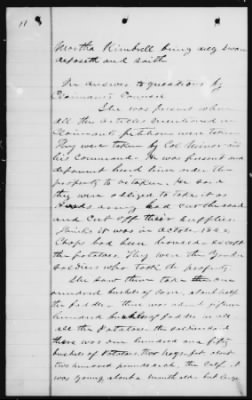 11
Martha Kimbrell being duly sworn
deposeth and saith
In answer to questions by
Claimant's Counsel
She was present when
all the articles mentioned in
Claimant's petition were taken
They were taken by Col Minor and
his command. He was present and
deponent heard him order the
property to be taken. He said
they were obliged to take it as
had
and cut off their supplies.
Thinks it was in October 1864.
Crops had been housed except
the potatoes. They were the Yankee
soldiers who took the property
She saw them take the one
hundred bushels of corn, and half
the fodder. there was about fifteen
hundred of fodder in all
all the potatoes the soldiers
there was one hundred and fifty
bushels of potatoes, two hogs, about
two hundred pounds each, the calf, it
was young, about a month old but large